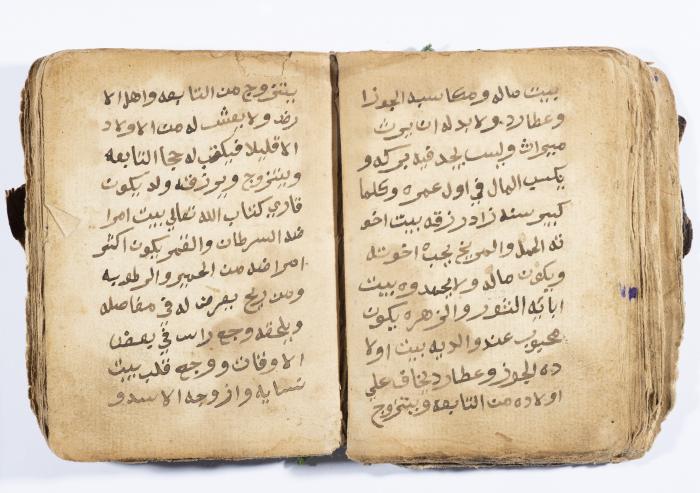 بيت ماله ومكاسبه الجوزا
وعطارد ولا بد له ان يرث
ميراث وليس يجد فيه بركه و
يكسب المال في اول عمره وكلما
كبير سنه زاد رزقه بيت اخو
ته الحمل والمريخ يجب اخوته
ويكون ماله ولا يحمدوه بيت
ابايه الثور والزهره يكون
محبوب عند والديه بيت اولا
ده الجوز وعطارد يخاف علي
اولاده من التابعه ويتزوج
بيتزوج من التابعه واهل الا
رض ولا يعيش له من الاولاد
الا قليلا فيكتب له حجا التابعه
ويتزوج ويرزقه ولد يكون
قاري كتاب الله تعالي بيت امرا
ضه السرطان والقمر يكون اكثر
امراضه من الحمير والرطوبه
ومن ريح يعرض له في مفاصله
ويلحقه وجع راس في بعض
الاوقات ووجع قلب بيت
نسايه وازوجه الاسد و